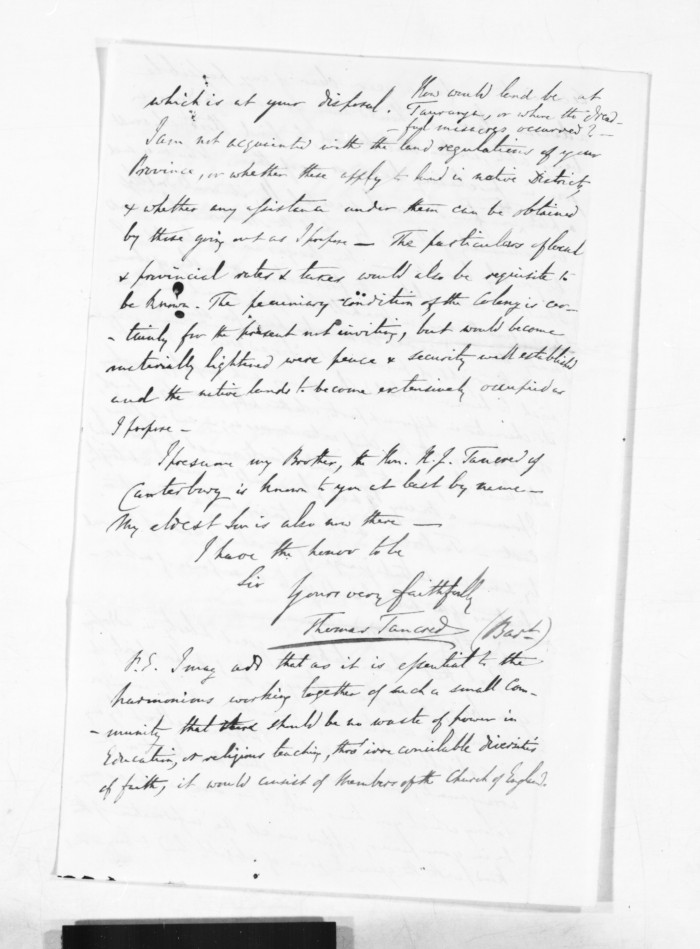 which is at your disposal. How would land be at
Tauranga, or where the dread-
-ful massacres occurred? -
I am not acquainted with the land regulations of your
Province, or whether these apply to land in native Districts,
& whether any assistance under them can be obtained
by those going out as I propose — The particulars of local
& provincial rates & taxes would also be requisite to
be known. The pecuniary condition of the Colony is cer-
-tainly for the present not inviting, but would become
materially lightened were peace & security well established
and the native lands to become extensively occupied as
I propose —
I presume my Brother, the Hon. H. J. Tancred of
Canterbury is known to you at least by name —
My eldest Son is also now there —
I have the honor to be
Sir
Yours very faithfully
Thomas Tancred (Bart)
P.S. I may add that as it is essential to the
harmonious working together of such a small com-
-munity that there should be no waste of power in
Education, or religious teaching, thro' irreconcilable diversities
of faith, it would consist of Members of the Church of England.